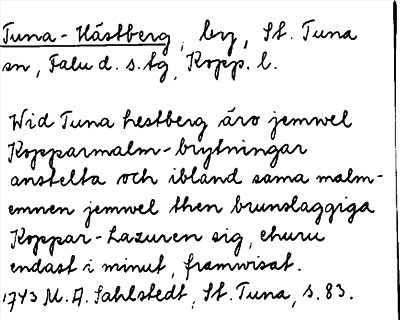 Tuna-Hästberg, by, St. Tuna
sn, Falu d. s. tg, Kopp. l.
Wid Tuna hestberg äro jemwel
Kopparmalm-brytningar
anstelta och ibland sama malm-
emnen jemwel then brunslaggiga
Koppar-Lazuren sig, ehuru
endast i minut, framwisat.
1743 M. A. Sahlstedt, St. Tuna, s. 83.